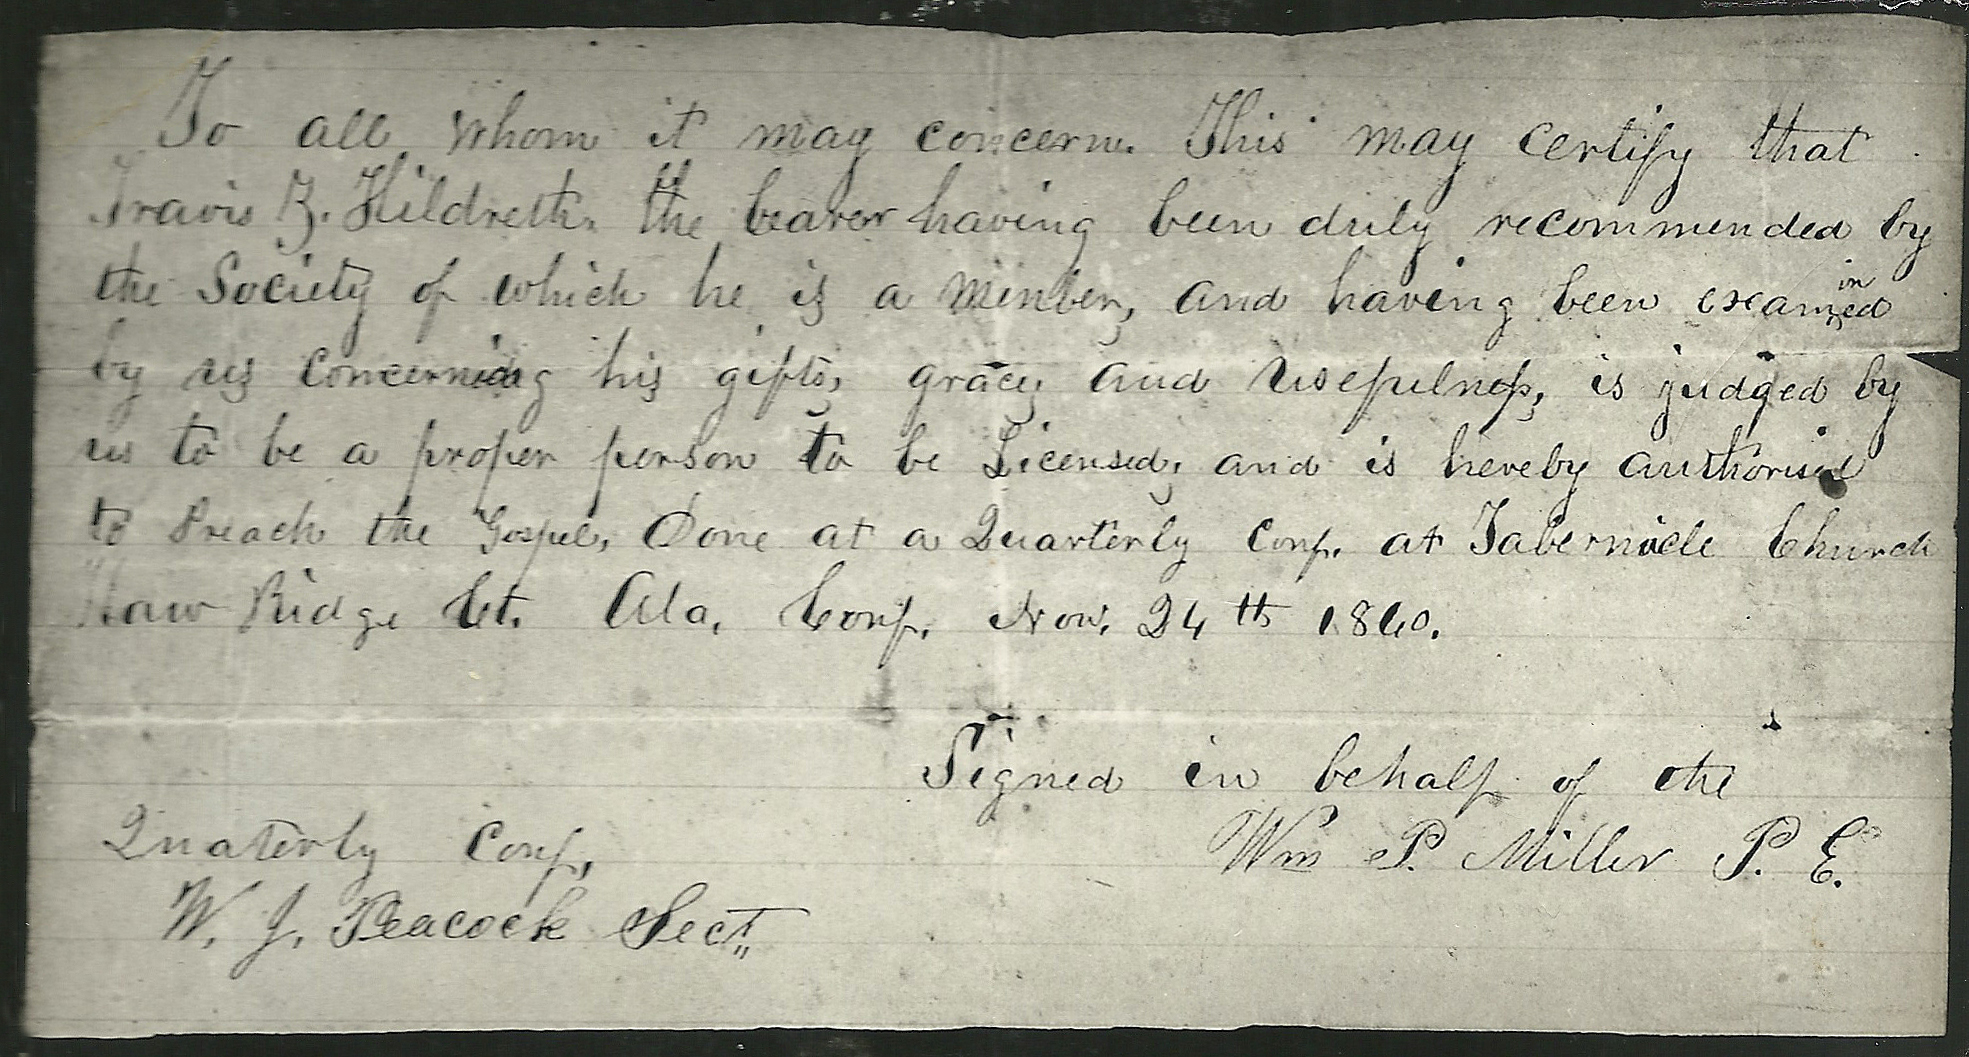 To all whom it may concern. This may certify that
Travis Z. Hildreth, the bearer having been duly recommended by
the Society of which he is a Member, and having been examined
by us concerning his gifts, grace, and usefulness, is judged by
us to be a proper person to be Licensed, and is hereby authorised
to Preach the Gospel, Done at a Quarterly Conf. at Tabernacle Church
Haw Ridge Ct. Ala, Conf. Nov. 24th 1860.
Signed in behalf of the
Quaterly Conf,
Wm P. Miller P. E.
W. J. Peacock Sect.